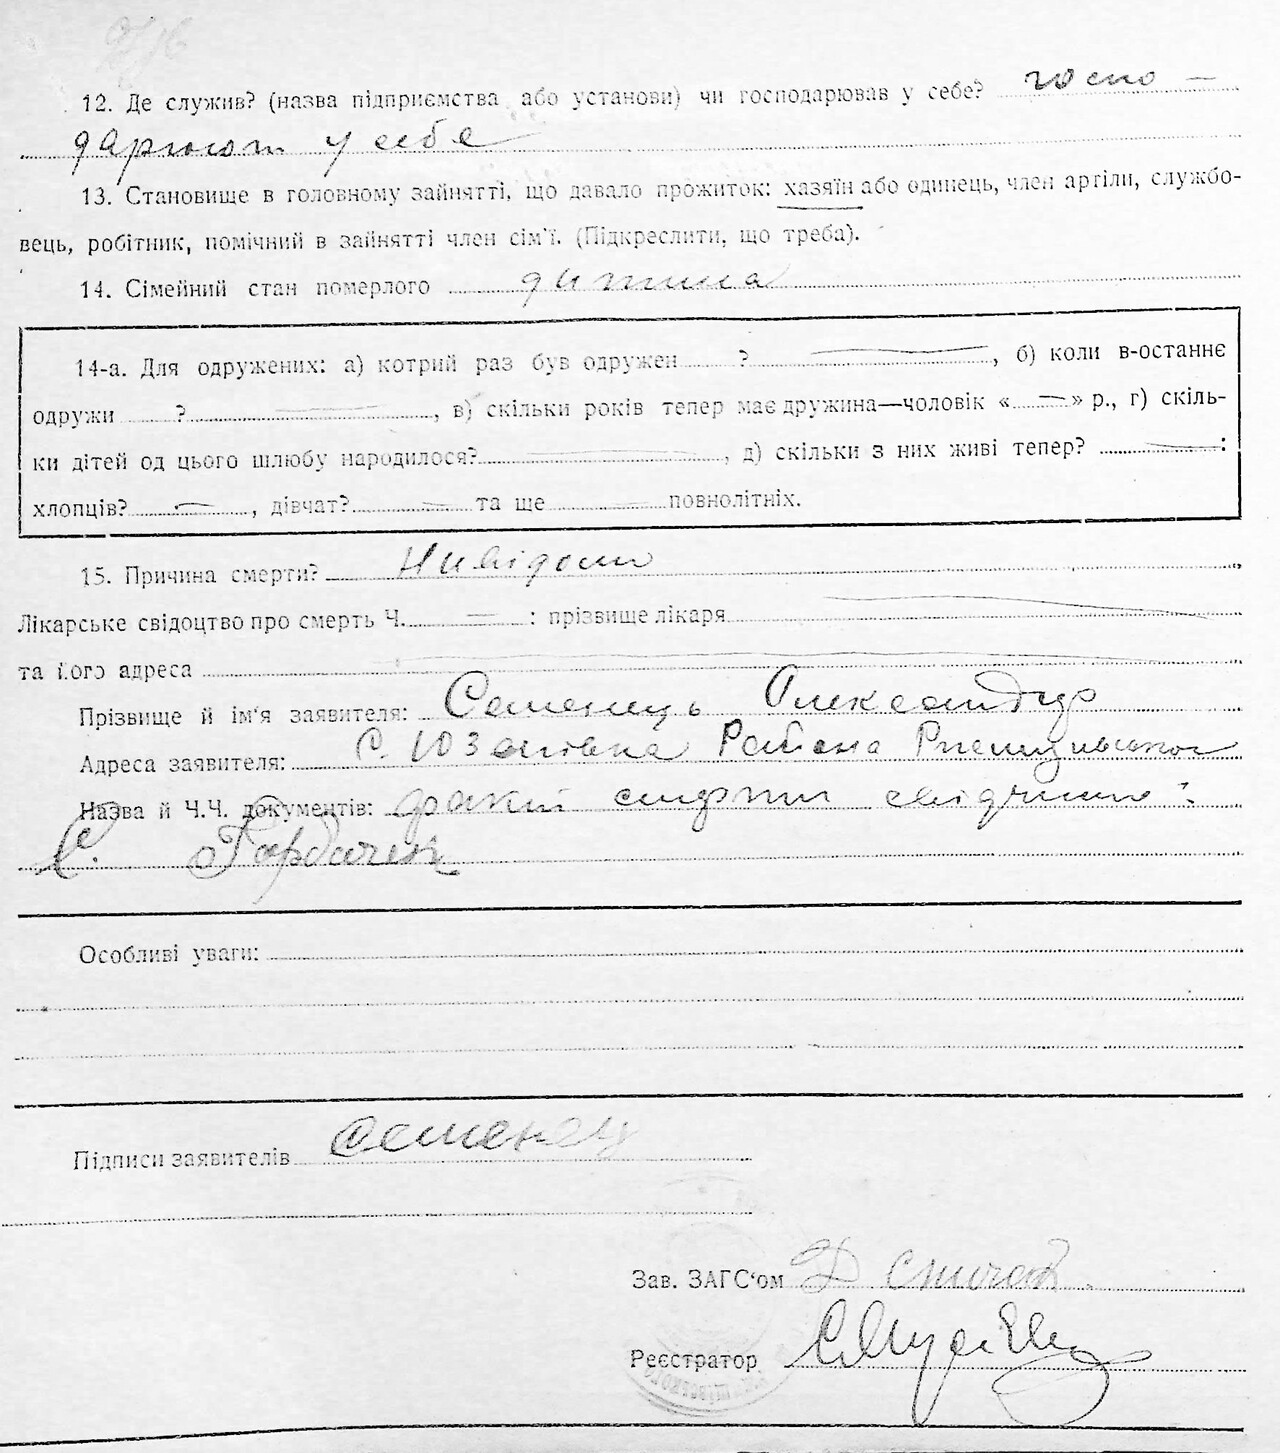 12. Де служив? (назва підприємства або установи) чи господарював у себе? госпо —
дарюют у себе
13. Становище в головному зайнятті, що давало прожиток: хазяїн або одинець, член артіли, службо-
вець, робітник, помічний в зайнятті член сім'ї. (Підкреслити, що треба).
14. Сімейний стан померлого дитина
14-а. Для одружених: а) котрий раз був одружен ? —, б) коли в-останнє
одружи ? —, в) скільки років тепер має дружина—чоловік « — » р., г) скіль-
ки дітей од цього шлюбу народилося? —, д) скільки з них живі тепер? — :
хлопців? —, дівчат? — та ще — повнолітніх.
15. Причина смерти? Нивідома
Лікарське свідоцтво про смерть Ч. — : прізвище лікаря —
та його адреса —
Прізвище й ім'я заявителя: Семенець Александр
Адреса заявителя: с. Юзапівка Района
Назва й Ч.Ч. документів: факт смерти
С. Горбачек
Особливі уваги:
Підписи заявителів Семенец
Зав. ЗАГС'ом
Реєстратор